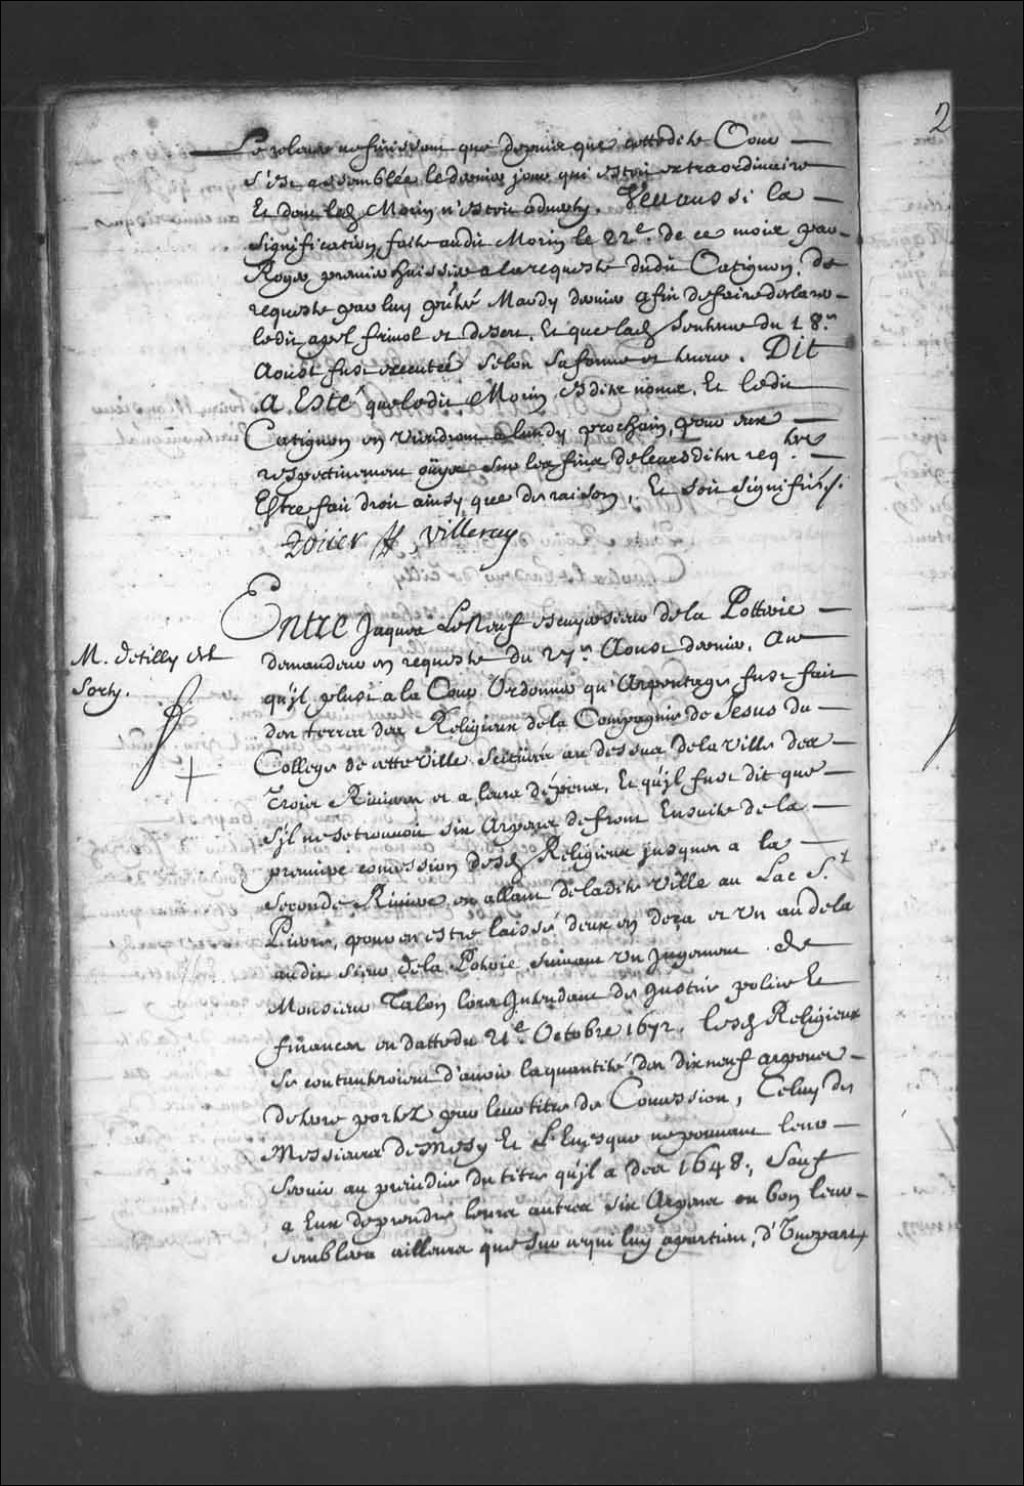 2
Le relevé ne finissant que depuis que cette dite Cour
s'est assemblée le dernier jour qui estoit extraordinaire
Et dont led. Morin n'estoit adverty. Veu aussi la
signification faite audit Morin le 22e. de ce mois par
Roger premier huissier a la requeste dudit Catignon, de
requeste par luy p̃ñtée Mardy dernier afin de faire declarer
ledit apel frivol et desert, Et que lad. Sentence du 18.e
Aoust fust executée selon sa forme et teneur. Dit
a Esté que ledit Morin esdits noms, Et ledit
Catignon en viendront a lundy prochain, pour eux
respectivement oüys sur les fins de leursdites req.tes
Estre fait droit ainsy que de raison, Et soit signifié./.
Roüer de Villeray
Entre Jaques LeNeuf escuyer sieur de la Potterie
M. detilly est
sorty.
demandeur en requeste du 27.e Aoust dernier, A ce
qu'jl plust a la Cour Ordonner qu'Arpentage fust fait
des terres des Religieux de la Compagnie de Jesus du
College de cette Ville scituées au dessus de la ville des
Trois Rivieres et a leurs dépens, Et qu'jl fust dit que
s'jl ne se trouvoit six Arpens de front Ensuite de la
premiere concession desd. Religieux jusques a la
seconde Riviere en allant de ladite Ville au Lac S.t
Pierre, pour en estre laissé deux en deça et un au dela
audit sieur de la Poterie suivant un Jugement de
Monsieur Talon lors Jntendant de Justice police Et
finances en datte du 21e. Octobre 1672. lesd. Religieux
se contenteroient d'avoir la quantité des dix neuf arpens
de terre portez par leur titre de Concession, Celuy de
Messieurs de Mesy Et L'Evesque ne pouvant leur
servir au prejudice du titre qu'jl a des 1648., Sauf
a Eux de prendre leurs autres six Arpens ou bon leur
semblera ailleurs que sur ce qui luy apartient, d'Unepart,